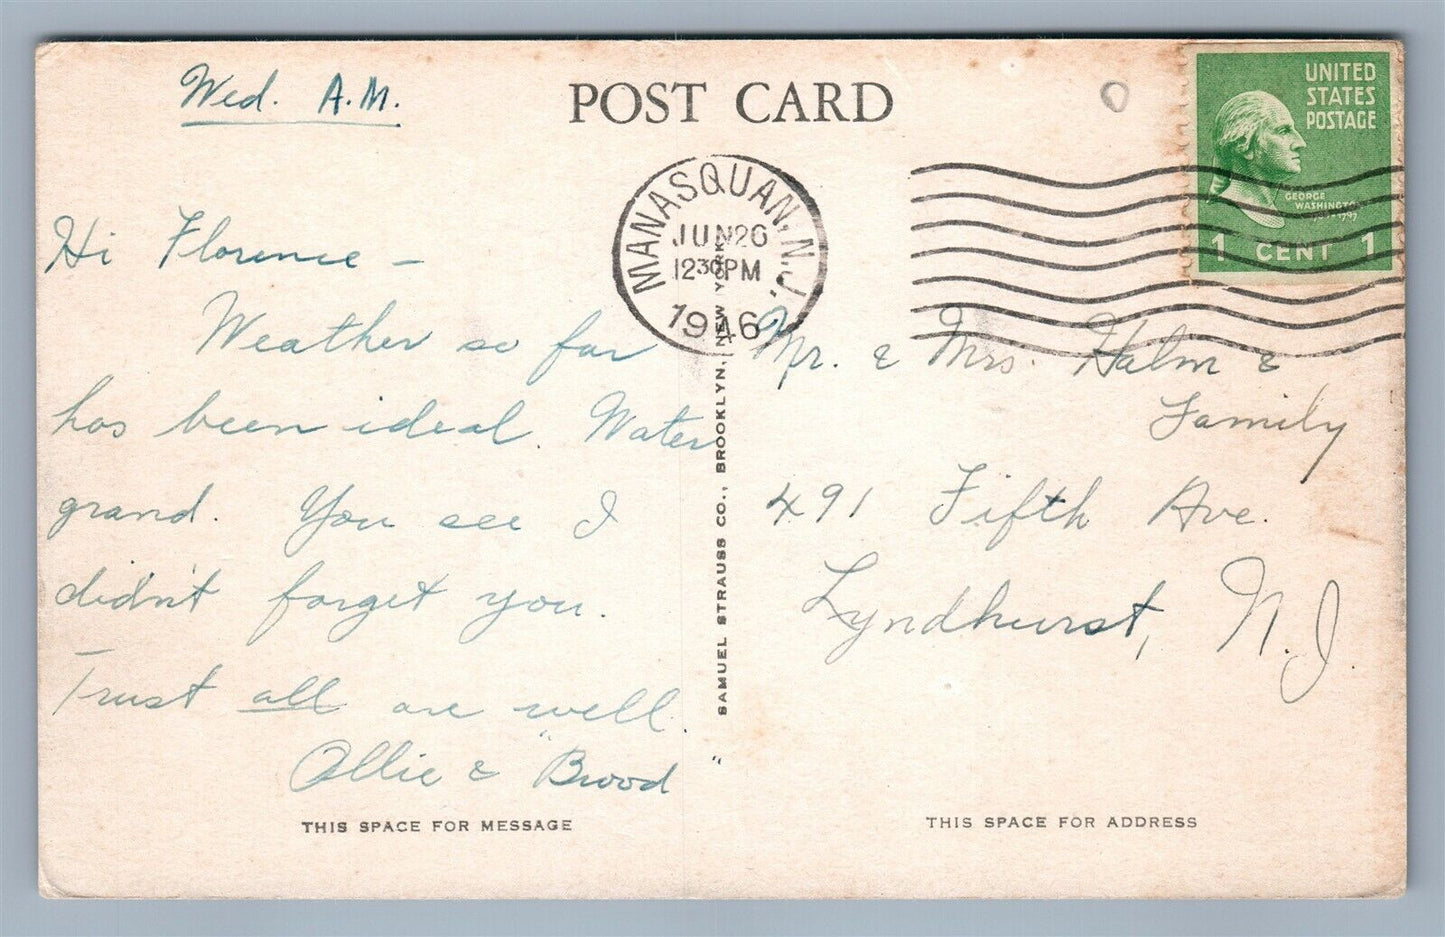 Wed. A.M.
POST CARD
UNITED
STATES
POSTAGE
GEORGE
WASHINGTON
1 CENT 1
MANASQUAN, N.J.
JUN 26
12 30 PM
1946
Hi Florence –
Weather so far
has been ideal. Water
grand. You see I
didn't forget you.
Trust all are well.
Ollie & "Brood"
THIS SPACE FOR MESSAGE
SAMUEL STRAUSS CO., BROOKLYN, NEW YORK
Mr. & Mrs. Halm &
Family
491 Fifth Ave.
Lyndhurst, N.J.
THIS SPACE FOR ADDRESS